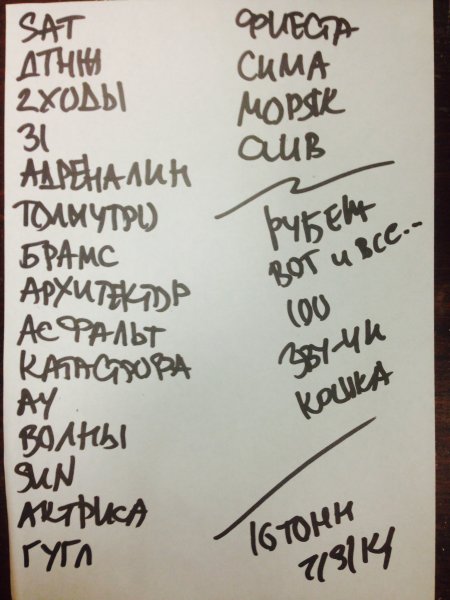 SAT
ДТНЖ
2ХОДЫ
31
АДРЕНАЛИН
БРАМС
АРХИТЕКТОР
АСФАЛЬТ
КАТАСТРОФА
АУ
ВОЛНЫ
SUN
АКТРИСА
ГУГЛ
ФИЕСТА
СИМА
MOPSIK
CLUB
РУБЕЖ
ВОТ И ВСЕ...
100
ЗВУЧИ
КОШКА
16ТОНН
7/9/14